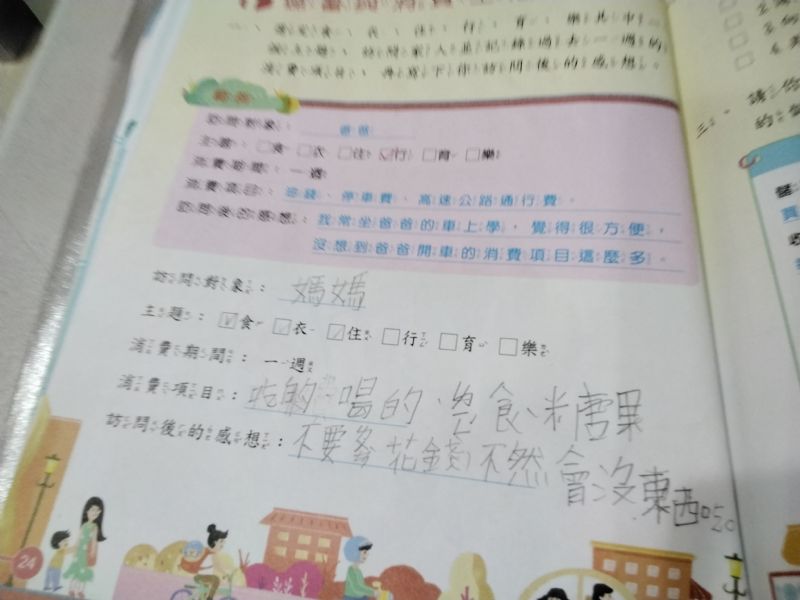 食、衣、住、行、育、樂其中一
訪問家人並記錄過去一週的
消費項目,並寫下你訪問後的感想。
範例
訪問對象:爸爸
主題:□食 □衣 □住 ☑行 □育 □樂
消費期間:一週
消費項目:油錢、停車費、高速公路通行費。
訪問後的感想:我常坐爸爸的車上學,覺得很方便,
沒想到爸爸開車的消費項目這麼多。
訪問對象:媽媽
主題:☑食 ☑衣 ☑住 □行 □育 □樂
消費期間:一週
消費項目:吃的、喝的、零食、糖果
訪問後的感想:不要多花錢不然會沒東西吃。
24
三、請你
的